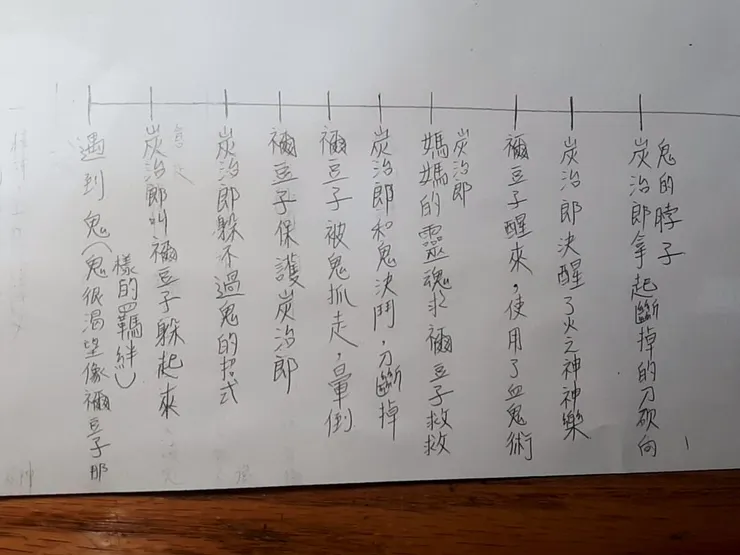 遇到鬼(鬼很渴望像禰豆子那
樣的羈絆)
炭治郎叫禰豆子躲起來
炭治郎躲不過鬼的招式
禰豆子保護炭治郎
禰豆子被鬼抓走，暈倒
炭治郎和鬼決鬥，刀斷掉
媽媽的靈魂求禰豆子救救
炭治郎
禰豆子醒來，使用了血鬼術
炭治郎決醒了火之神神樂
炭治郎拿起斷掉的刀砍向
鬼的脖子